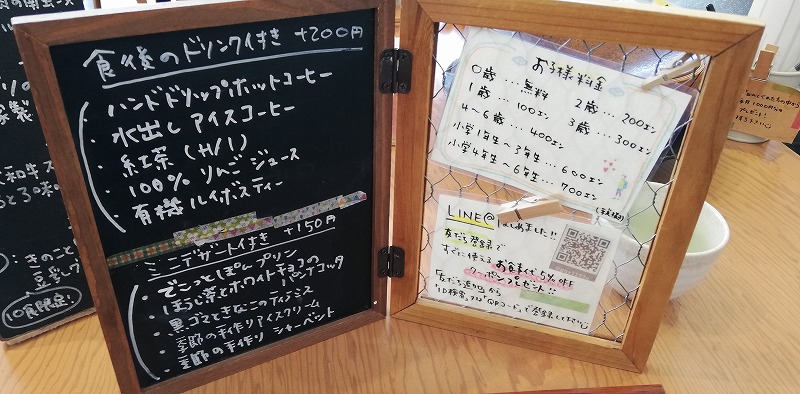 食後のドリンク付き +200円
・ハンドドリップホットコーヒー
・水出しアイスコーヒー
・紅茶(H/I)
・100%りんごジュース
・有機ルイボスティー
ミニデザート付き +150円
・でこっとぽんプリン
・ほうじ茶とホワイトチョコのパンナコッタ
・黒ゴマときなこのティラミス
・季節の手作りアイスクリーム
・季節の手作りシャーベット
お子様料金
0歳…無料 2歳…200エン
1歳…100エン 3歳…300エン
4〜6歳…400エン
小学1年生〜3年生…600エン
小学4年生〜6年生…700エン
(税抜)
LINE@はじめました!!
友だち登録で
すぐに使えるお食事代5%OFF
クーポンプレゼント!!
「友だち追加」から
「ID検索」又は「QRコード」で登録して下さい
10食限定!